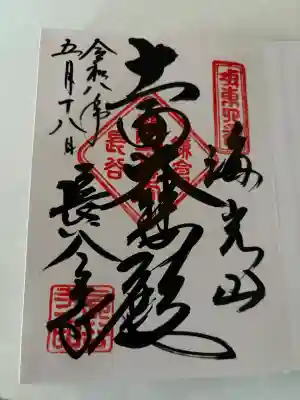 坂東四番
海光山
十一面大悲殿
鎌倉
長谷
令和八年
五月十八日
長谷寺